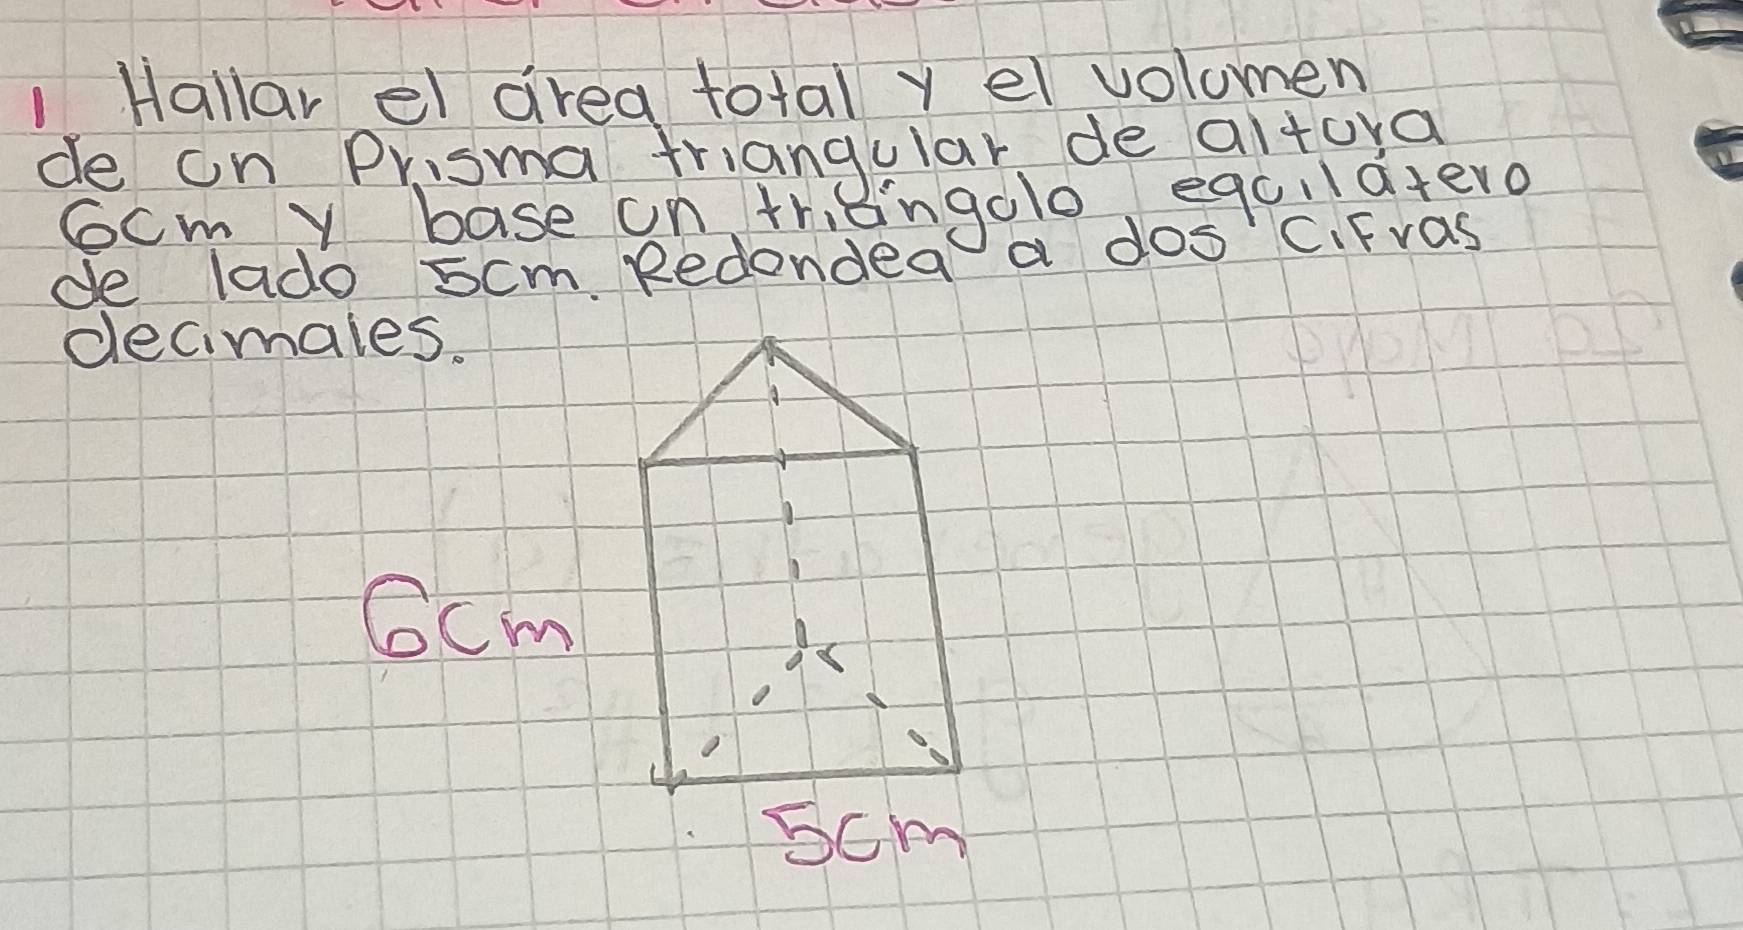 1 Hallar el área total y el volumen
de un Prisma triangular de altura
6cm y base un triángulo equilátero
de lado 5cm. Redondea a dos cifras
decimales.
6cm
5cm